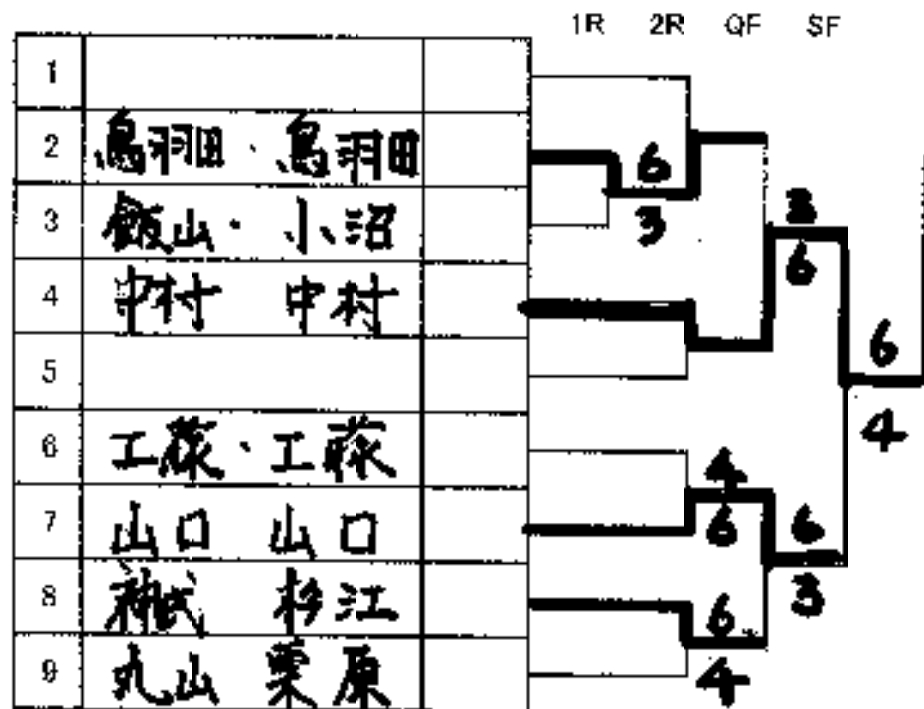 1R 2R QF SF
1
2 鳥羽田・鳥羽田
3 飯山・小沼
4 中村 中村
5
6 工藤・工藤
7 山口 山口
8 杉江
9 丸山 栗原
6
3
3
6
6
4
4
6
6
3
6
4